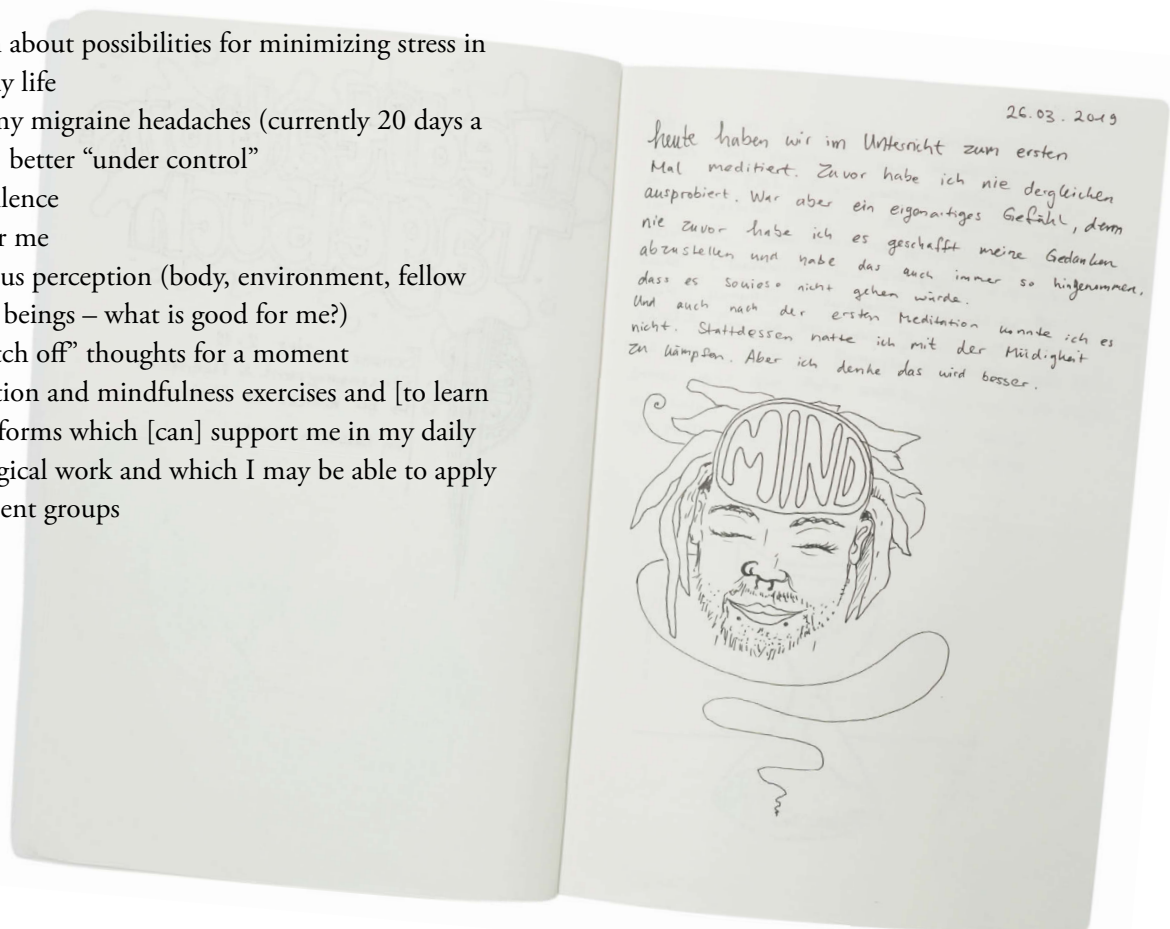 about possibilities for minimizing stress in
life
migraine headaches (currently 20 days a
better “under control”
me
perception (body, environment, fellow
beings – what is good for me?)
off” thoughts for a moment
and mindfulness exercises and [to learn
forms which [can] support me in my daily
work and which I may be able to apply
groups
26.03.2019
heute haben wir im Unterricht zum ersten
Mal meditiert. Zuvor habe ich nie dergleichen
ausprobiert. War aber ein eigenartiges Gefühl, denn
nie zuvor habe ich es geschafft meine Gedanken
abzustellen und habe das auch immer so hingenommen,
dass es sowieso nicht gehen würde.
Und auch nach der ersten Meditation konnte ich es
nicht. Stattdessen hatte ich mit der Müdigkeit
zu kämpfen. Aber ich denke das wird besser.
MIND